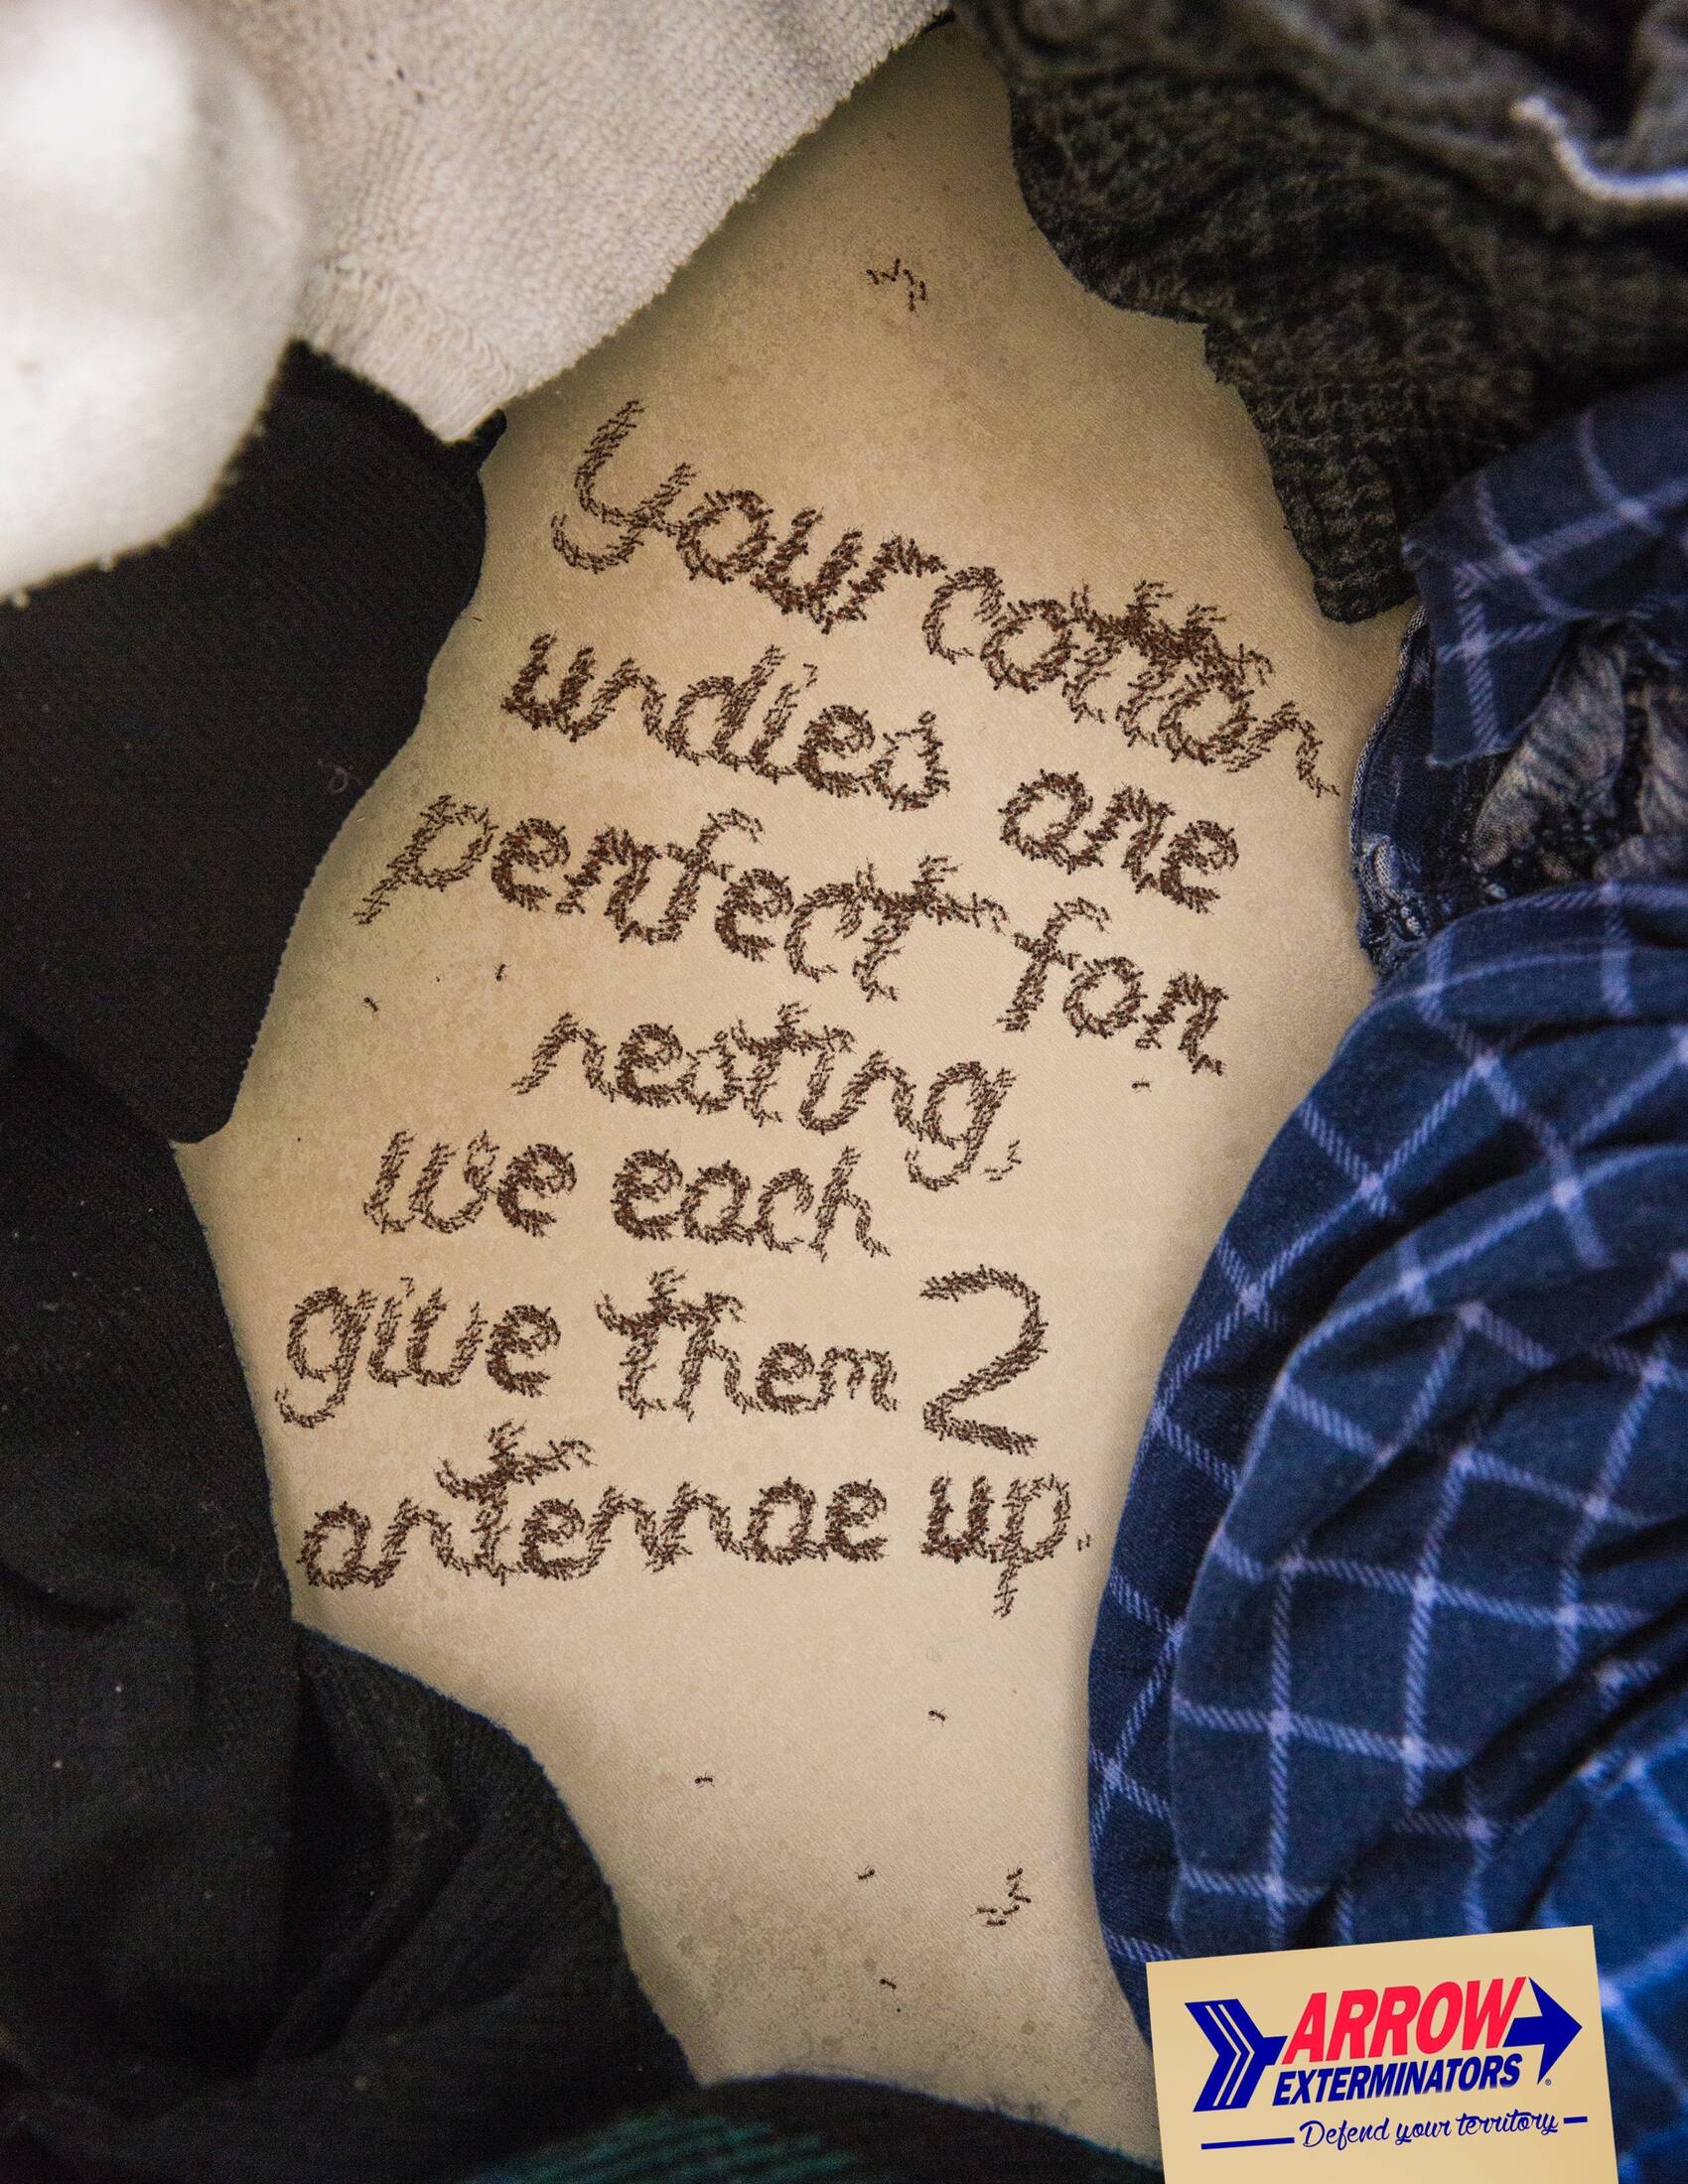 Your cotton
undies are
perfect for
nesting,
we each
give them 2
antennae up.
ARROW
EXTERMINATORS
Defend your territory